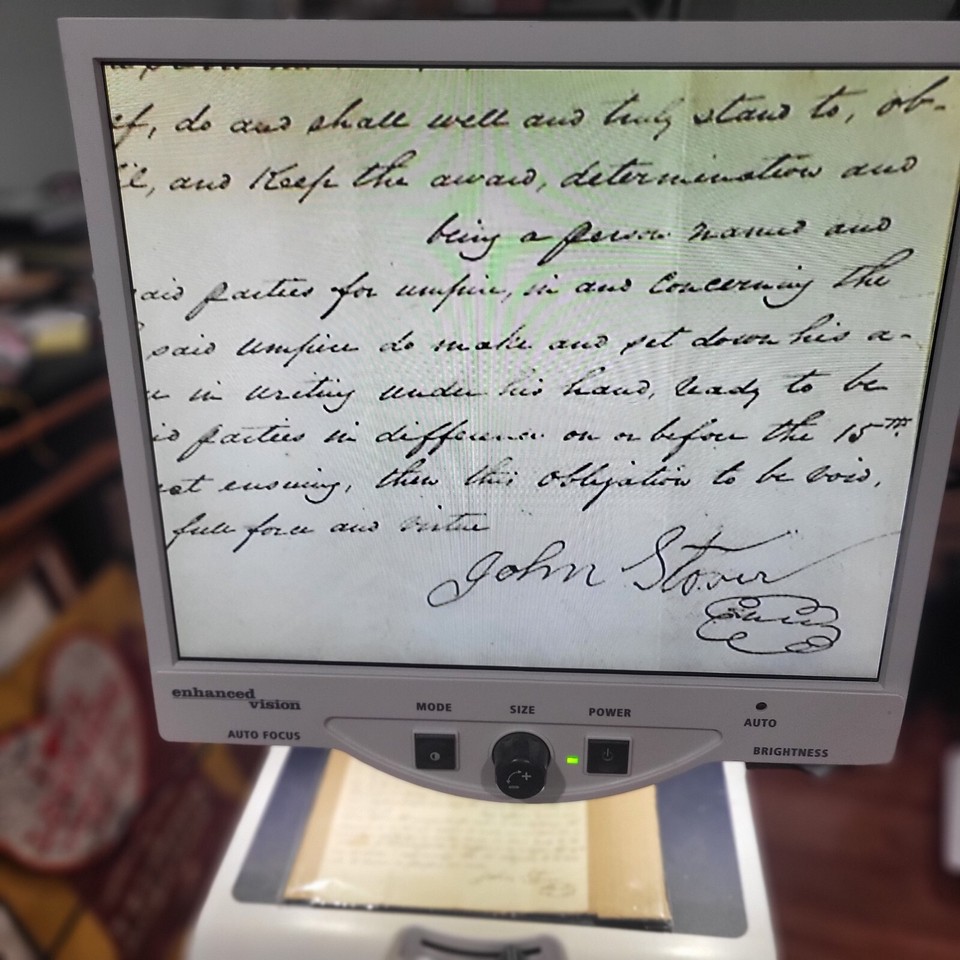 do and shall well and truly stand to, ob-
and Keep the award, determination and
being a person named and
aid parties for umpire, in and Concerning the
said umpire do make and set down his a-
in writing under his hand, ready to be
parties in difference on or before the 15th
ensuing, then this obligation to be void,
full force and virtue
John Stover
enhanced
vision
AUTO FOCUS
MODE
SIZE
POWER
AUTO
BRIGHTNESS